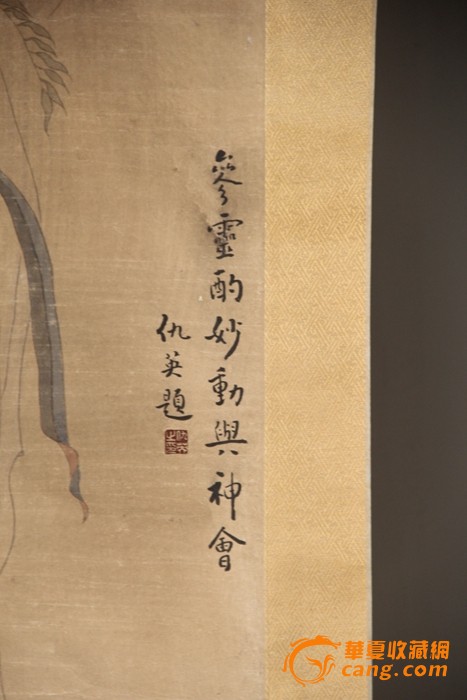 參靈酌妙動與神會
仇英題
華夏收藏網
cang.com